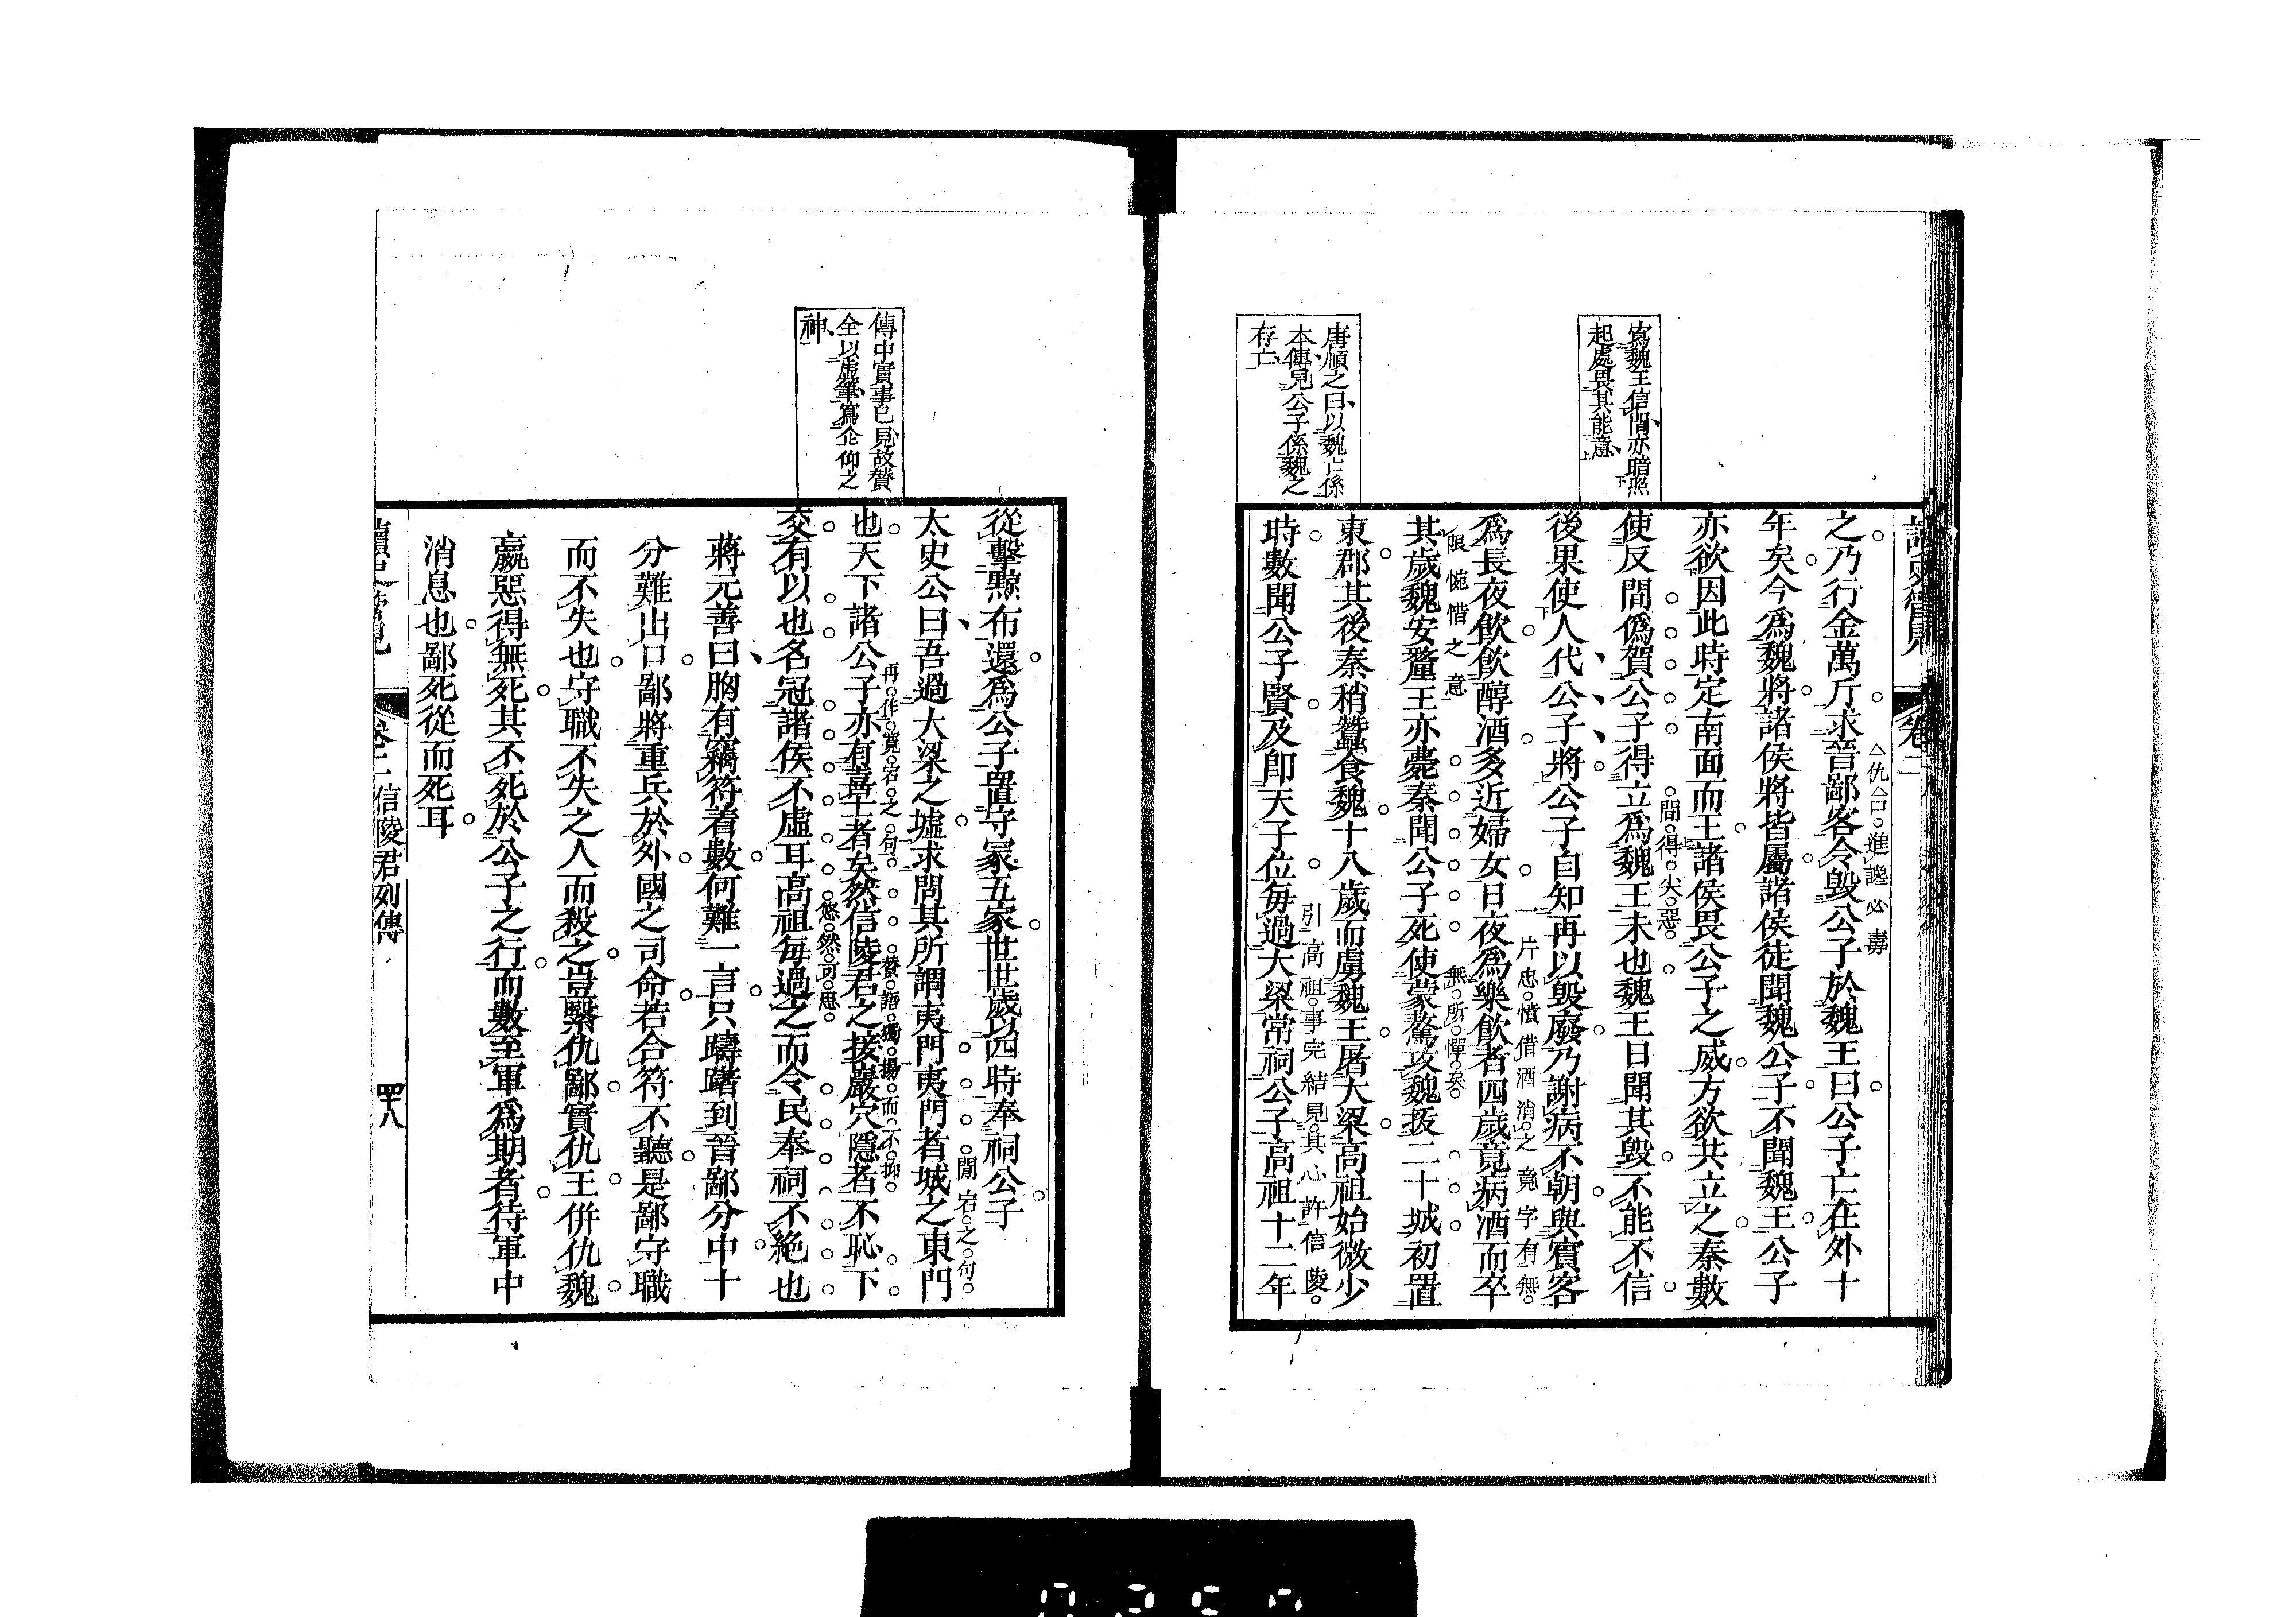 寫魏王信間亦暗照
起處畏其能意
唐順之曰以魏亡係
本傳見公子係魏之
存亡
卷二
之乃行金萬斤求晉鄙客令毀公子於魏王曰公子亡在外十
仇口進讒必毒
年矣今爲魏將諸侯將皆屬諸侯徒聞魏公子不聞魏王公子
亦欲因此時定南面而王諸侯畏公子之威方欲共立之秦數
間得尖惡
使反間僞賀公子得立爲魏王未也魏王日聞其毀不能不信
後果使人代公子將公子自知再以毀廢乃謝病不朝與賓客
一片忠憤借酒消之竟字有無
限惋惜之意
爲長夜飮飮醇酒多近婦女日夜爲樂飮者四歲竟病酒而卒
無所憚矣
其歲魏安釐王亦薨秦聞公子死使蒙驁攻魏拔二十城初置
東郡其後秦稍蠶食魏十八歲而虜魏王屠大梁高祖始微少
引高祖事完結見其心許信陵
時數聞公子賢及卽天子位每過大梁常祠公子高祖十二年
傳中實事已見故贊
全以虛筆寫企仰之
神
從擊黥布還爲公子置守冢五家世世歲以四時奉祠公子
閒宕之句
太史公曰吾過大梁之墟求問其所謂夷門夷門者城之東門
再作寬宕之句 贊語獨揚而不抑
也天下諸公子亦有喜士者矣然信陵君之接巖穴隱者不恥下
悠然可思
交有以也名冠諸侯不虛耳高祖每過之而令民奉祠不絕也
蔣元善曰胸有竊符着數何難一言只躊躇到晉鄙分中十
分難出口鄙將重兵於外國之司命若合符不聽是鄙守職
而不失也守職不失之人而殺之豈繄仇鄙實仇王併仇魏
嬴惡得無死其不死於公子之行而數至軍爲期者待軍中
消息也鄙死從而死耳
卷二 信陵君列傳 四十八